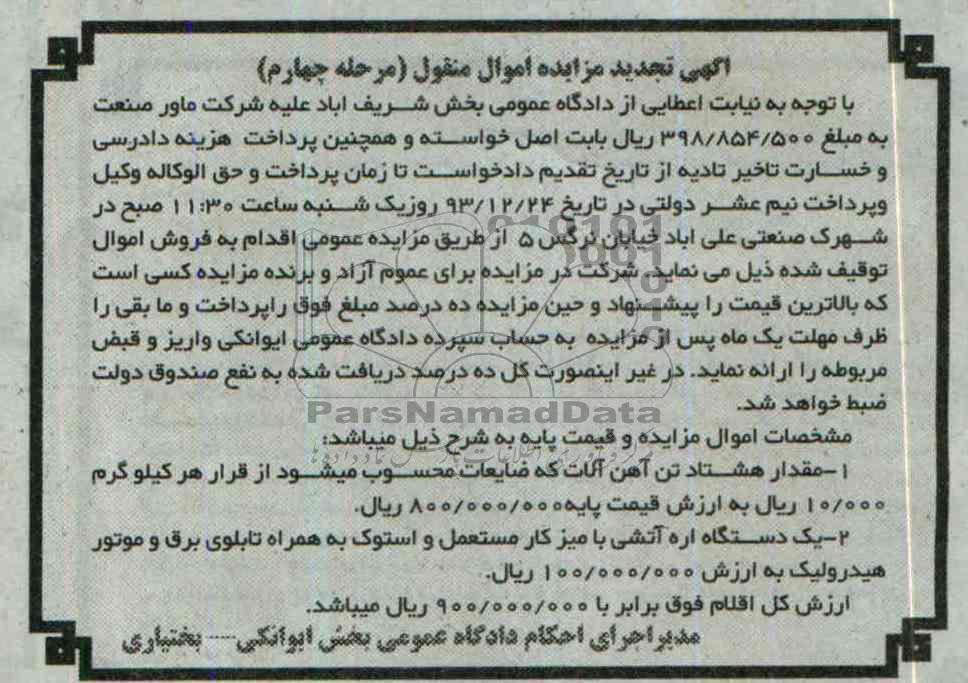 آگهی تجدید مزایده اموال منقول (مرحله چهارم)
با توجه به نیابت اعطایی از دادگاه عمومی بخش شریف اباد علیه شرکت ماور صنعت
به مبلغ ۳۹۸/۸۵۴/۵۰۰ ریال بابت اصل خواسته و همچنین پرداخت هزینه دادرسی
و خسارت تاخیر تادیه از تاریخ تقدیم دادخواست تا زمان پرداخت و حق الوکاله وکیل
وپرداخت نیم عشر دولتی در تاریخ ۹۳/۱۲/۲۴ روزیک شنبه ساعت ۱۱:۳۰ صبح در
شهرک صنعتی علی اباد خیابان نرگس ۵ از طریق مزایده عمومی اقدام به فروش اموال
توقیف شده ذیل می نماید. شرکت در مزایده برای عموم آزاد و برنده مزایده کسی است
که بالاترین قیمت را پیشنهاد و حین مزایده ده درصد مبلغ فوق راپرداخت و ما بقی را
ظرف مهلت یک ماه پس از مزایده به حساب سپرده دادگاه عمومی ایوانکی واریز و قبض
مربوطه را ارائه نماید. در غیر اینصورت کل ده درصد دریافت شده به نفع صندوق دولت
ضبط خواهد شد.
ParsNamadData
مشخصات اموال مزایده و قیمت پایه به شرح ذیل میباشد:
۱-مقدار هشتاد تن آهن آلات که ضایعات محسوب میشود از قرار هر کیلو گرم
۱۰/۰۰۰ ریال به ارزش قیمت پایه۸۰۰/۰۰۰/۰۰۰ ریال.
۲-یک دستگاه اره آتشی با میز کار مستعمل و استوک به همراه تابلوی برق و موتور
هیدرولیک به ارزش ۱۰۰/۰۰۰/۰۰۰ ریال.
ارزش کل اقلام فوق برابر با ۹۰۰/۰۰۰/۰۰۰ ریال میباشد.
مدیر اجرای احکام دادگاه عمومی بخش ایوانکی--- بختیاری